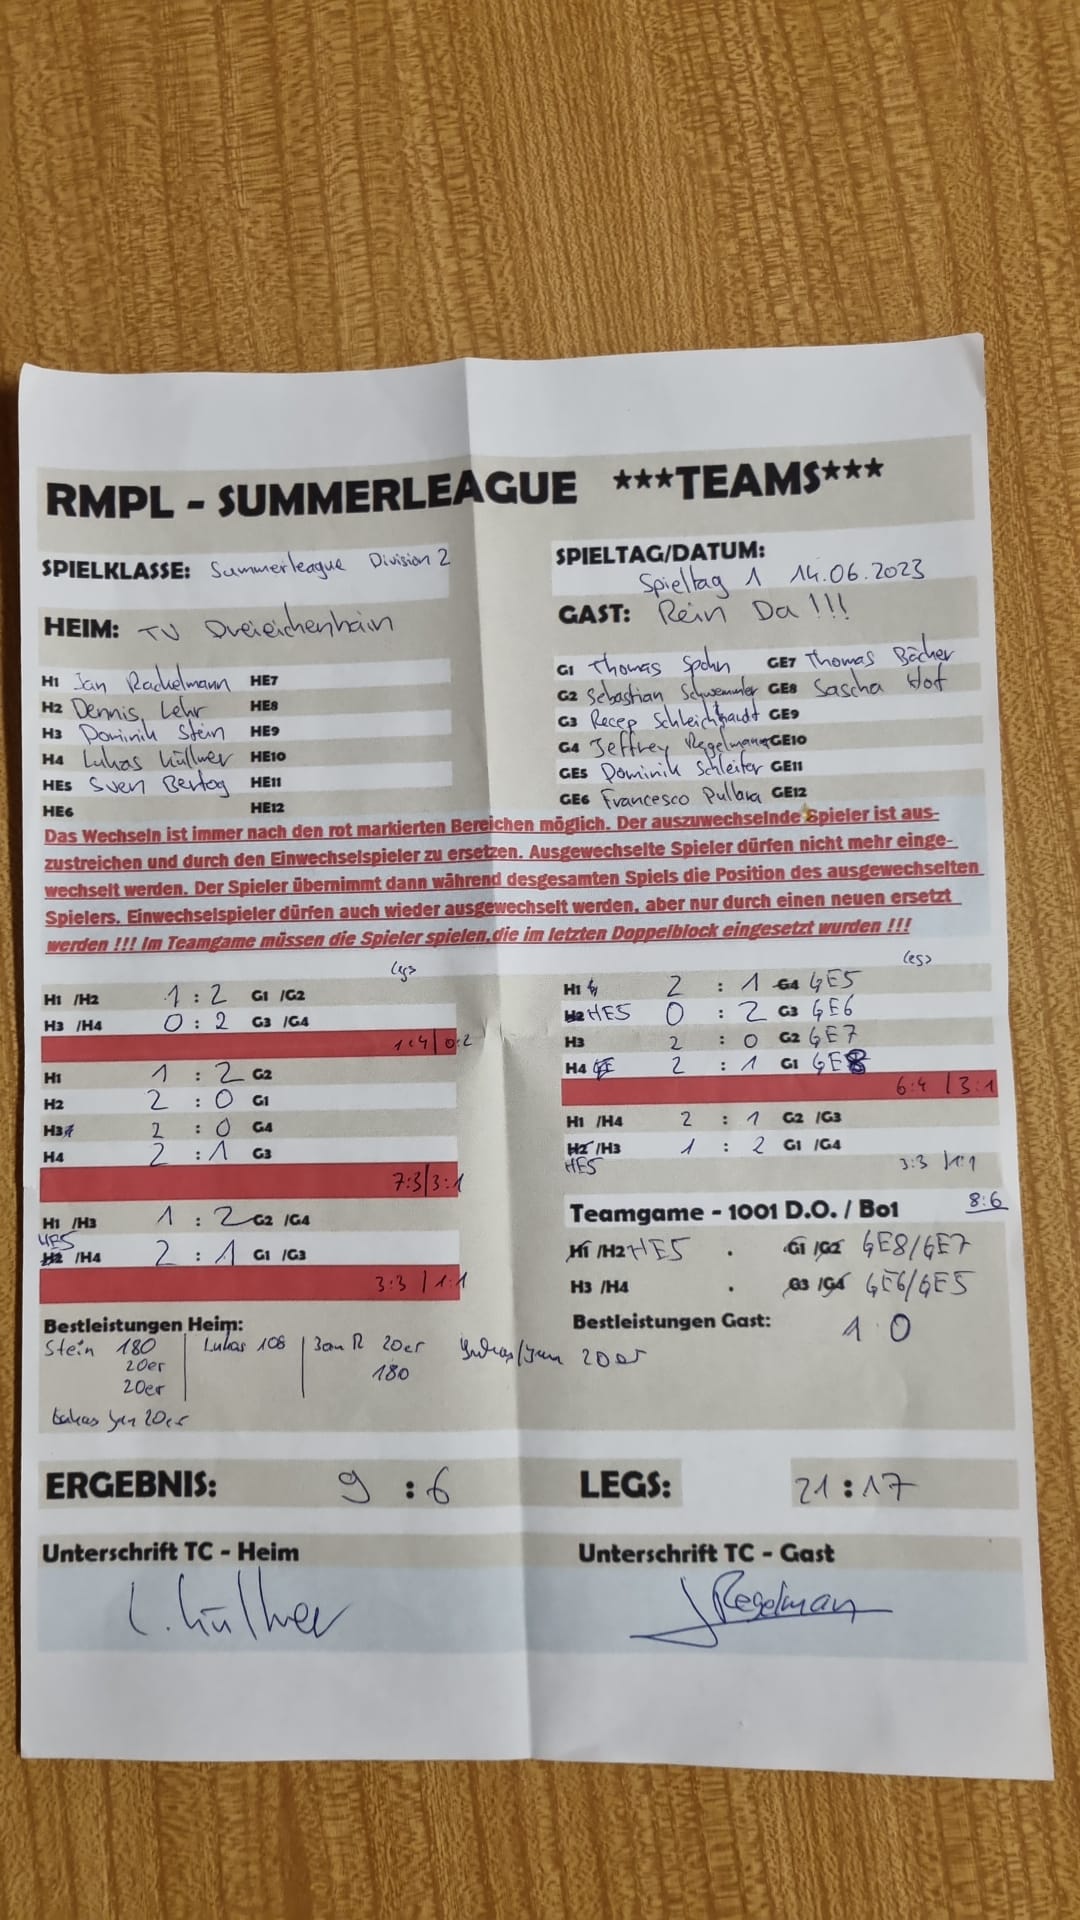 RMPL - SUMMERLEAGUE ***TEAMS***
SPIELKLASSE: Summerleague Division 2
SPIELTAG/DATUM:
Spieltag 1 14.06.2023
HEIM: TV Dreieichenhain
GAST: Rein Da!!!
H1 Jan Rackelmann HE7
H2 Dennis Lehr HE8
H3 Dominik Stein HE9
H4 Lukas Küllmer HE10
HE5 Sven Bertog HE11
HE6 HE12
G1 Thomas Spohn GE7 Thomas Bächer
G2 Sebastian Schwemmler GE8 Sascha Hof
G3 Recep Schleichhardt GE9
G4 Jeffrey Regelmann GE10
GE5 Dominik Schleifer GE11
GE6 Francesco Pullara GE12
Das Wechseln ist immer nach den rot markierten Bereichen möglich. Der auszuwechselnde Spieler ist aus-
zustreichen und durch den Einwechselspieler zu ersetzen. Ausgewechselte Spieler dürfen nicht mehr einge-
wechselt werden. Der Spieler übernimmt dann während desgesamten Spiels die Position des ausgewechselten
Spielers. Einwechselspieler dürfen auch wieder ausgewechselt werden, aber nur durch einen neuen ersetzt
werden !!! Im Teamgame müssen die Spieler spielen,die im letzten Doppelblock eingesetzt wurden !!!
Legs
H1 /H2 1 : 2 G1 /G2
H3 /H4 0 : 2 G3 /G4
1:4 | 0:2
H1 1 : 2 G2
H2 2 : 0 G1
H3 2 : 0 G4
H4 2 : 1 G3
7:3 | 3:1
H1 /H3 1 : 2 G2 /G4
HE5
H2 /H4 2 : 1 G1 /G3
3:3 | 1:1
Legs
H1 2 : 1 G4 GE5
H2 HE5 0 : 2 G3 GE6
H3 2 : 0 G2 GE7
H4 2 : 1 G1 GE8
6:4 | 3:1
H1 /H4 2 : 1 G2 /G3
H2 /H3 1 : 2 G1 /G4
HE5
3:3 | 1:1
8:6
Teamgame - 1001 D.O. / Bo1
H1 /H2 HE5 . G1 /G2 GE8/GE7
H3 /H4 . G3 /G4 GE6/GE5
1 0
Bestleistungen Heim:
Stein 180 | Lukas 108 | Jan R 20er
20er
180
20er
Lukas Jan 20er
Lukas/Jan 20er
Bestleistungen Gast:
ERGEBNIS: 9 : 6
LEGS: 21 : 17
Unterschrift TC - Heim
L. Küllmer
Unterschrift TC - Gast
J Regelmann